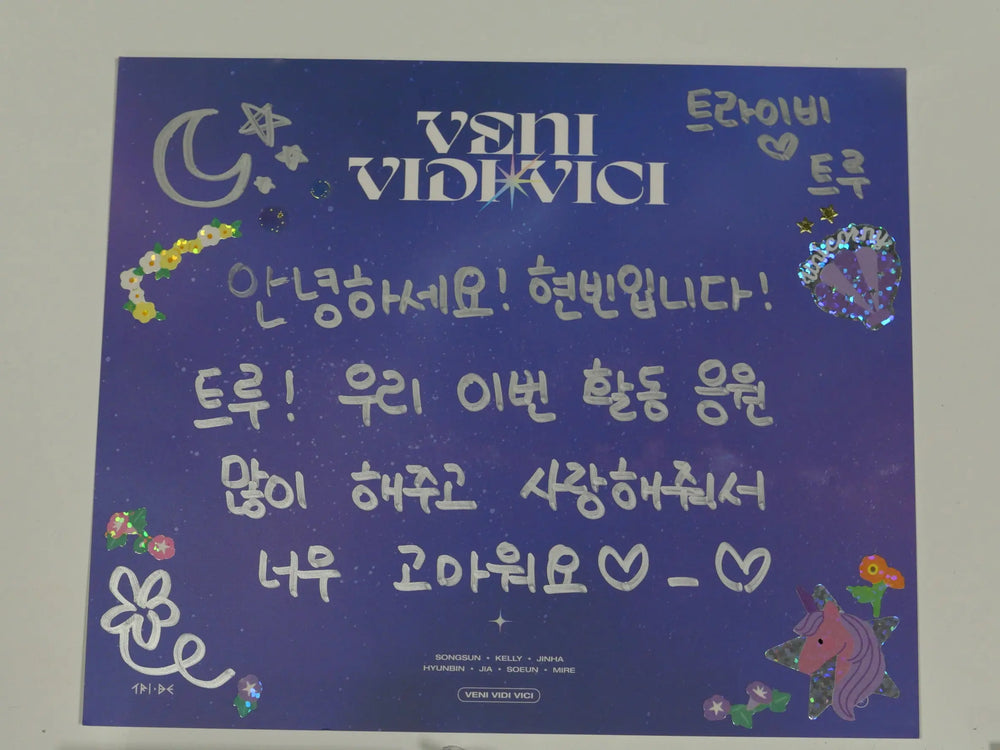 VENI
VIDI VICI
트라이비
♡
트루
unicorny
안녕하세요! 현빈입니다!
트루! 우리 이번 활동 응원
많이 해주고 사랑해줘서
너무 고마워요♡_♡
SONGSUN • KELLY • JINHA
HYUNBIN • JIA • SOEUN • MIRE
VENI VIDI VICI
TRI·BE